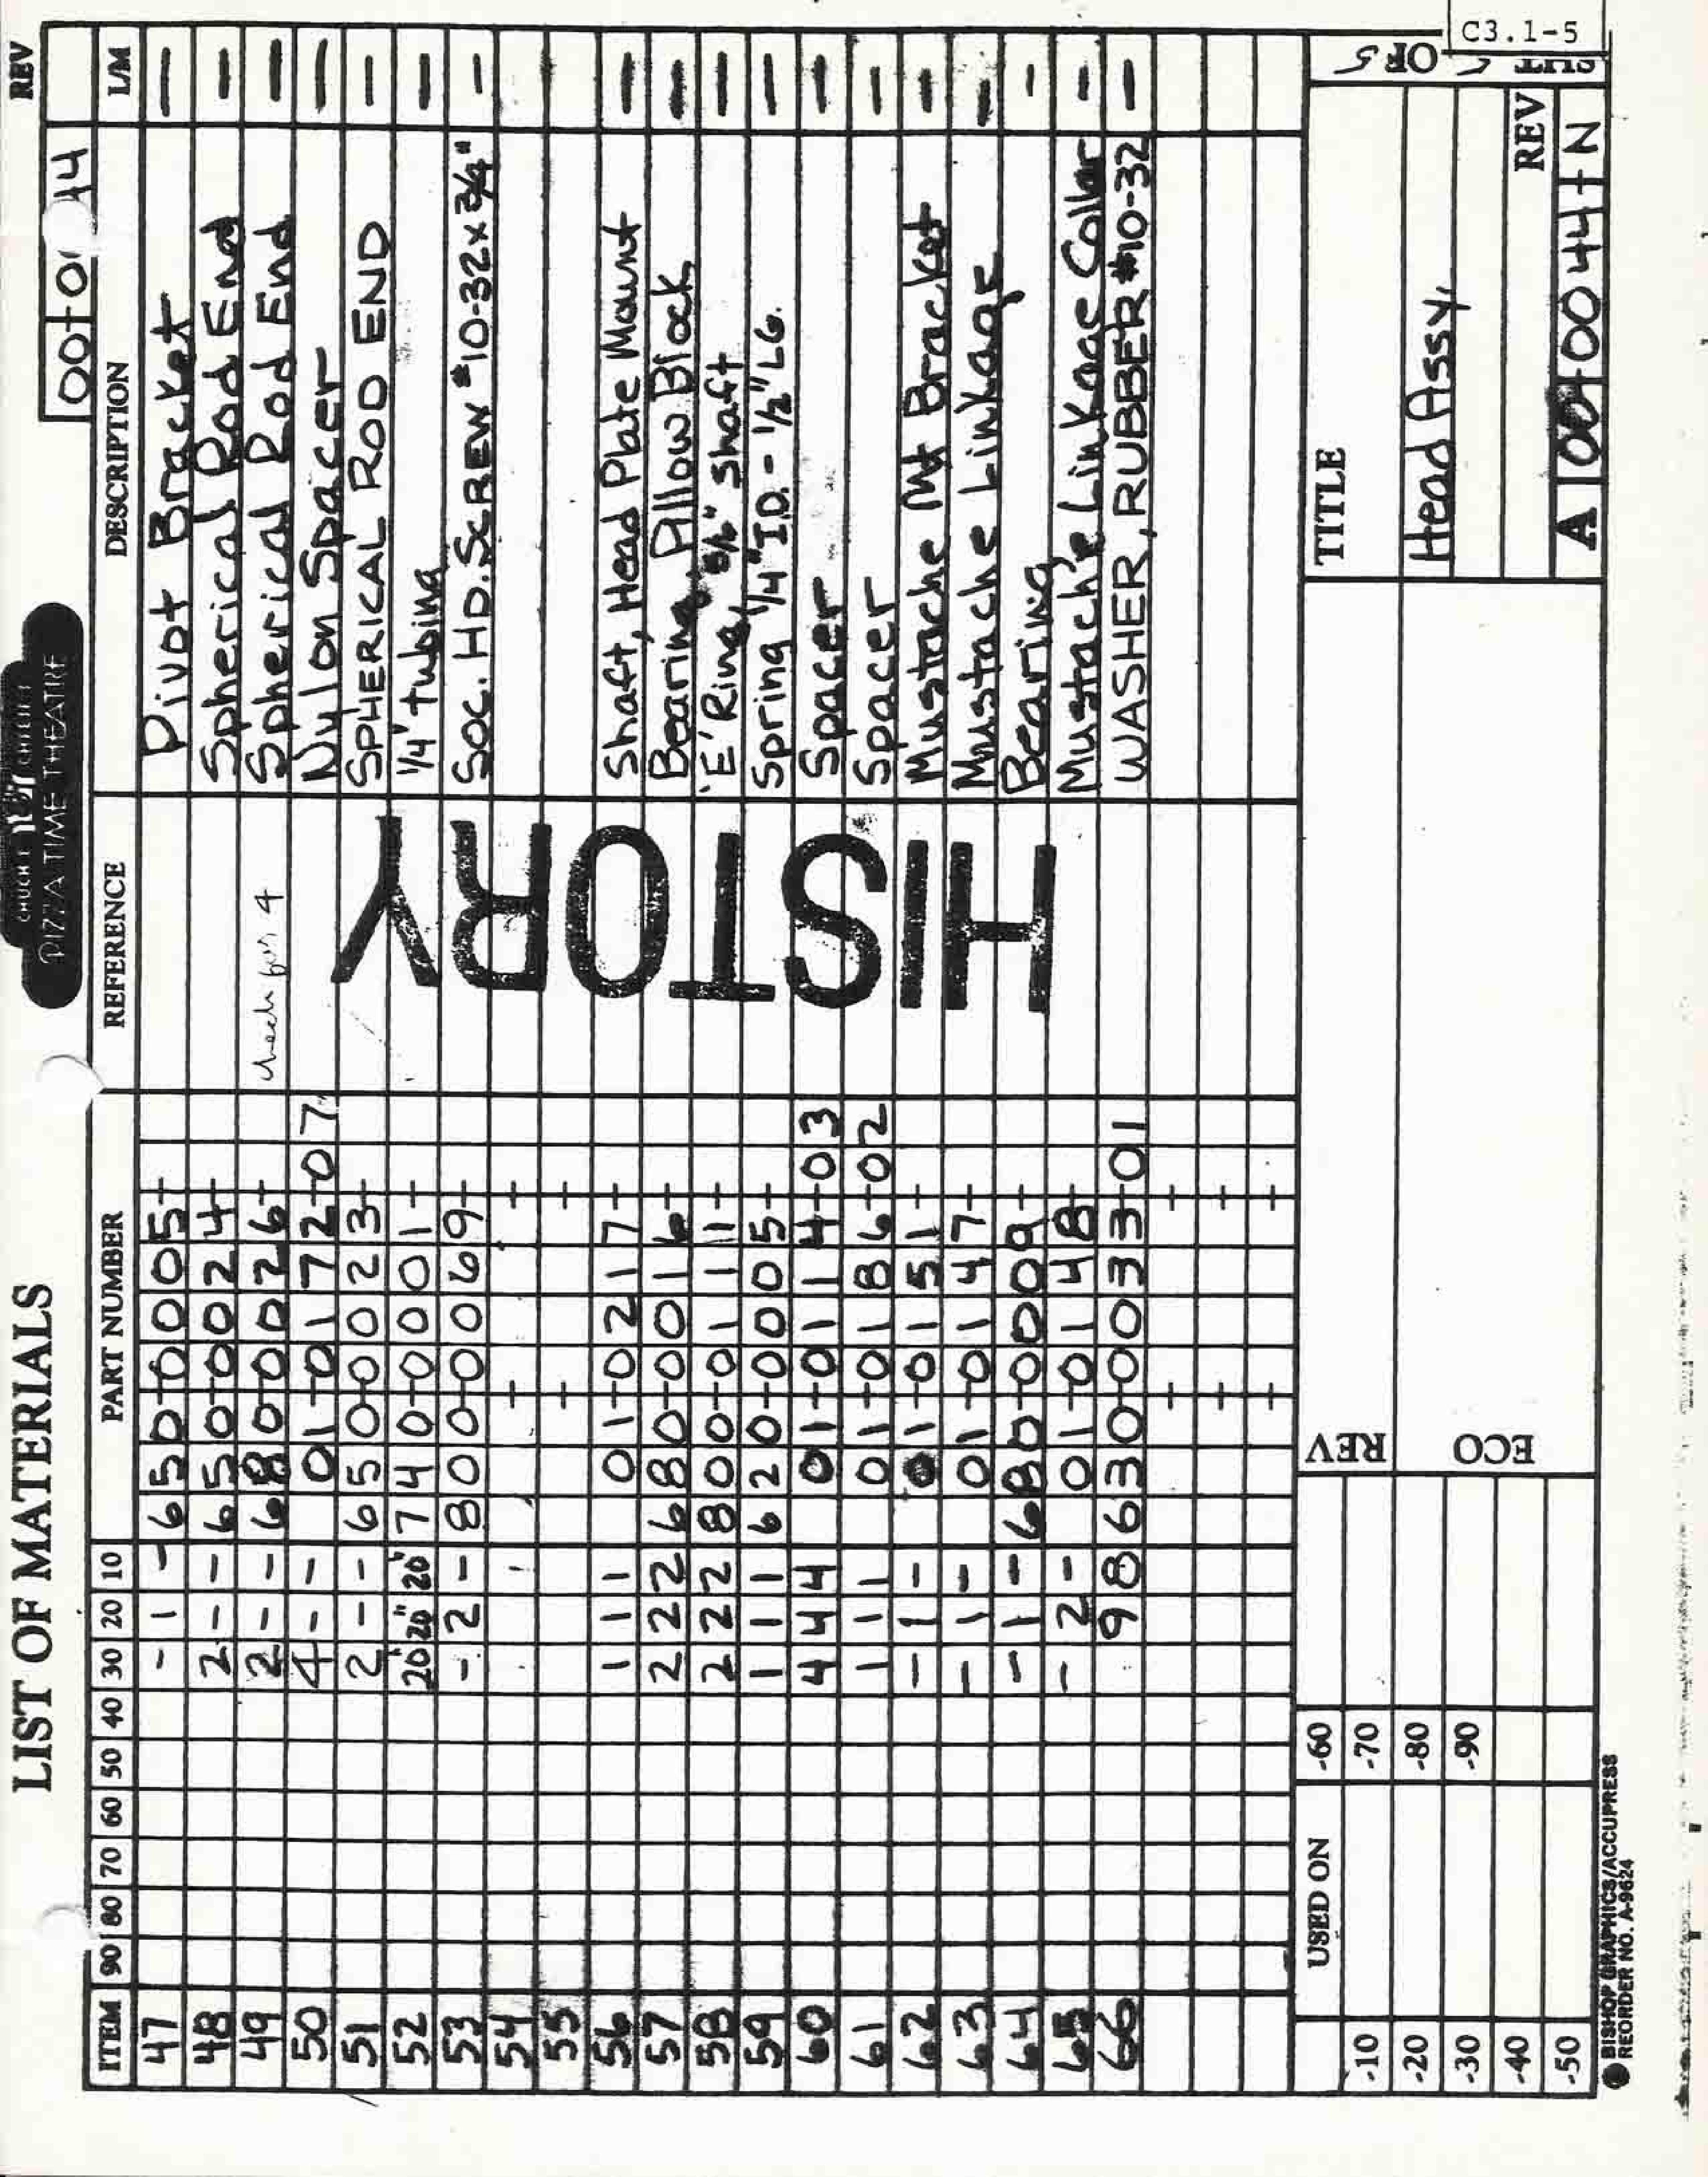 LIST OF MATERIALS
PIZZA TIME THEATRE
00+0 44
REV
ITEM 90 80 70 60 50 40 30 20 10 PART NUMBER REFERENCE DESCRIPTION L/M
47 - 1 - 650-0005- Pivot Bracket —
48 2 - - 650-0024- Spherical Rod End —
49 2 - - 680-0026- check for 4 Spherical Rod End —
50 4 - - 01-0172-07 Nylon Spacer —
51 2 - - 650-0023- SPHERICAL ROD END —
52 20" 20" 20" 740-0001- 1/4" tubing —
53 - 2 - 800-0069- SOC. HD. SCREW #10-32x3/4" —
54
55
56 1 1 1 01-0217- Shaft, Head Plate Mount —
57 2 2 2 680-0016- Bearing, Pillow Block —
58 2 2 2 800-0111- 'E' Ring, 5/16" shaft —
59 1 1 1 620-0005- Spring 1/4" I.D. - 1/2" LG. —
60 4 4 4 01-0114-03 Spacer —
61 1 1 1 01-0186-02 Spacer —
62 - 1 - 01-0151- Mustache Mt Bracket —
63 - 1 - 01-0147- Mustache Linkage —
64 - 1 - 680-0009- Bearing —
65 - 2 - 01-0148- Mustache Linkage Collar —
66 9 8 630-0033-01 WASHER, RUBBER #10-32 —
HISTORY
USED ON
-10 -60
-20 -70
-30 -80
-40 -90
-50
REV
ECO
TITLE
Head Assy.
SHT 5 OF 5
C3.1-5
REV
A 00+0044+N
BISHOP GRAPHICS/ACCUPRESS
REORDER NO. A-9624